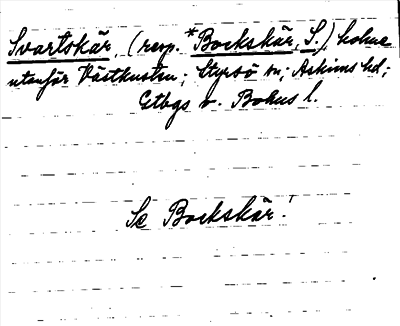 Svartskär, (resp. *Bockskär, S.), holme
utanför Västkusten; Styrsö sn; Askims hd;
Gtbgs o. Bohus l.
Se Bockskär!